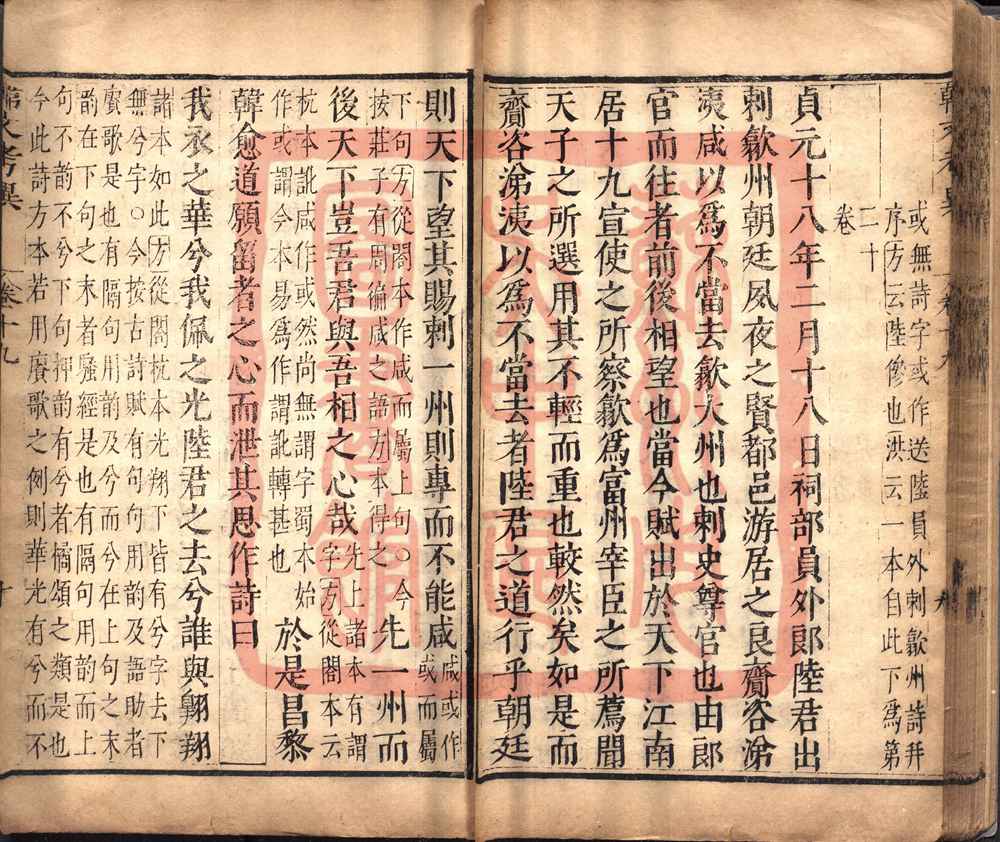 或無詩字或作送陸員外刺歙州詩幷
序方云陸傪也洪云一本自此下爲第
二十
卷
貞元十八年二月十八日祠部員外郎陸君出
刺歙州朝廷夙夜之賢都邑游居之良齎咨涕
洟咸以爲不當去歙大州也刺史尊官也由郎
官而往者前後相望也當今賦出於天下江南
居十九宣使之所察歙爲富州宰臣之所薦聞
天子之所選用其不輕而重也較然矣如是而
齎咨涕洟以爲不當去者陸君之道行乎朝廷
則天下望其賜刺一州則專而不能咸
咸或作
或而屬
下句方從閣本作咸而屬上句〇今
按莊子有周徧咸之語方本得之
先一州而
後天下豈吾君與吾相之心哉
先上諸本有謂
字方從閣本云
杭本訛咸作或然尚無謂字蜀本始
作或謂今本易爲作謂訛轉甚也
於是昌黎
韓愈道願留者之心而泄其思作詩曰
我衣之華兮我佩之光陸君之去兮誰與翺翔
諸本如此方從閣杭本光翔下皆有兮字去下
無兮字〇今按古詩賦有句句用韵及語助者
賡歌是也有隔句用韵及兮而兮在上句之末
韵在下句之末者騷經是也有隔句用韵而上
句不韵不兮下句押韵有兮者橘頌之類是也
今此詩方本若用賡歌之例則華光有兮而不
韓文考異
卷十九
十